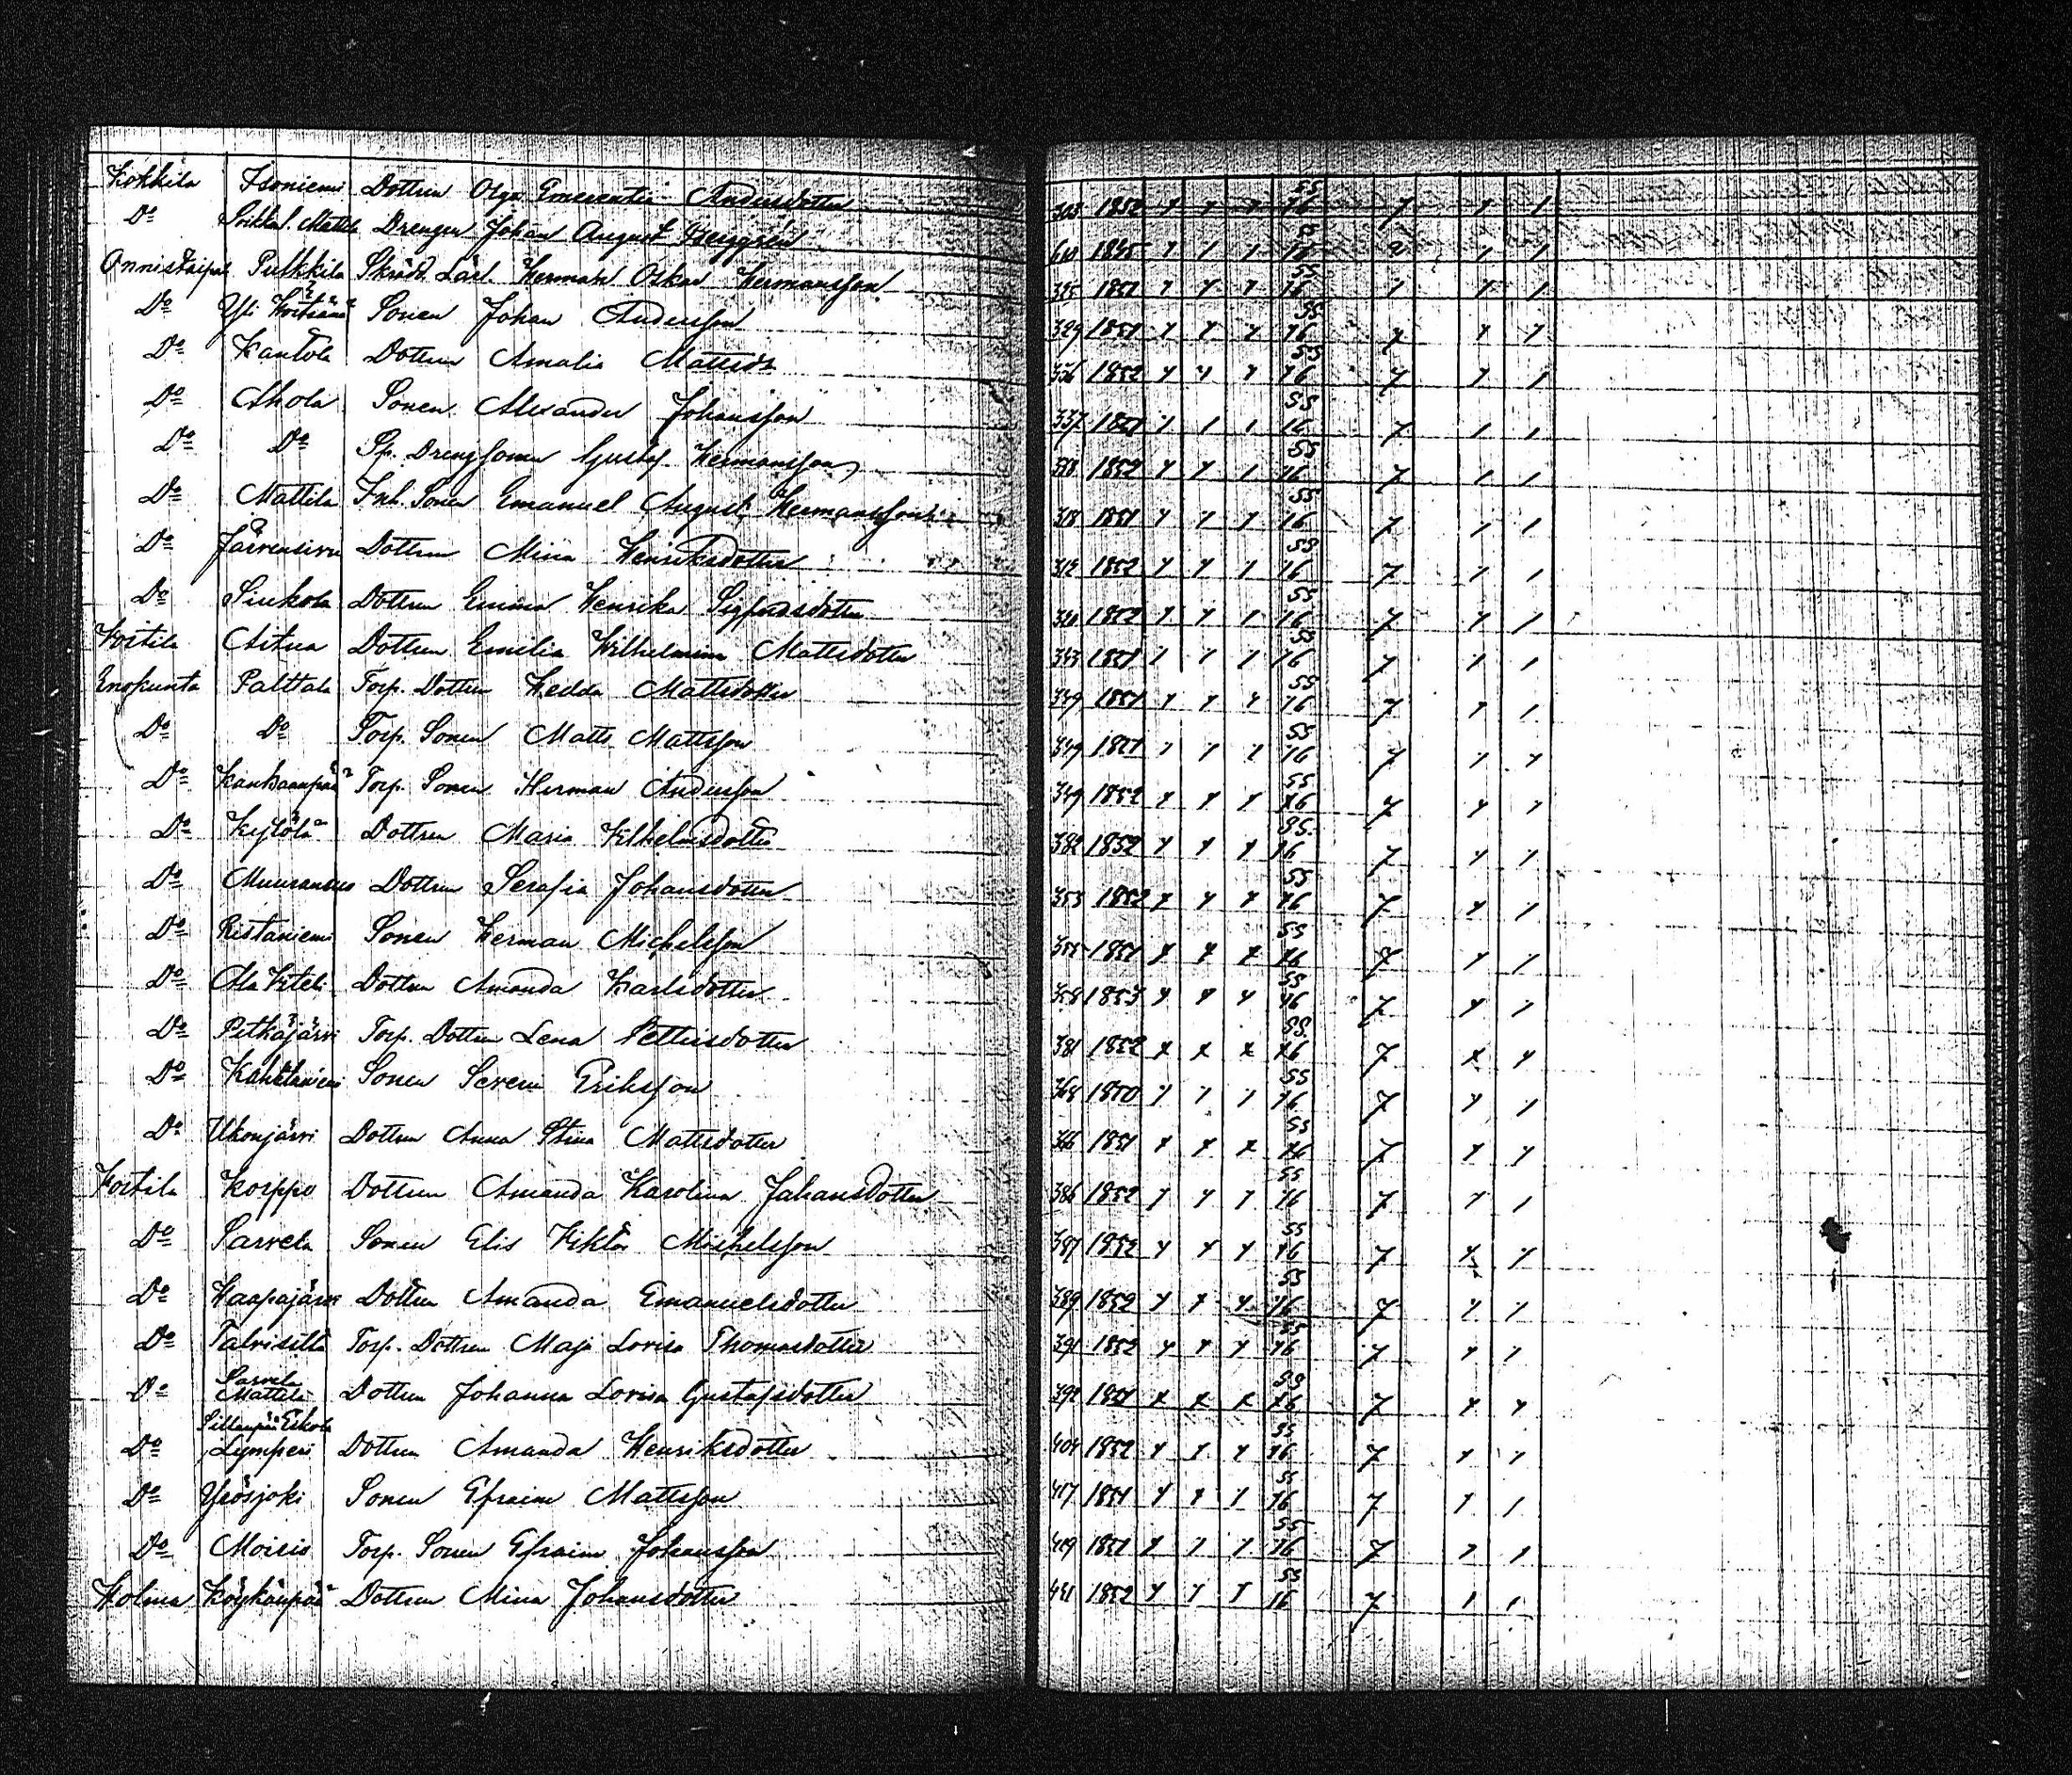 Kokkila Isoniemi Dottren Olga Emerentia Andersdotter 303 1852 1 1 1 55/16 7 1 1
Do Mattila Drengen Johan August Berggren 1845 1 1 1 55/16 2 1 1
Onnistaipal Pulkkila Skrädd. Lärl. Herman Oskar Hermansson 325 1851 1 1 1 55/16 1 1 1
Do Yli Sonen Johan Andersson 329 1851 1 1 1 55/16 7 1 1
Do Kantola Dottren Amalia Mattsdr 336 1852 1 1 1 55/16 7 1 1
Do Ahola Sonen Alexander Johansson 337 1851 1 1 1 55/16 7 1 1
Do Do Sp. Drengsonen Gustaf Hermansson 338 1852 1 1 1 55/16 7 1 1
Do Mattila Inh. Sonen Emanuel August Hermansson 318 1851 1 1 1 55/16 7 1 1
Do Järvensivu Dottren Mina Henriksdotter 312 1852 1 1 1 55/16 7 1 1
Do Sinkola Dottren Emma Henrika Sigfredsdotter 320 1852 1 1 1 55/16 7 1 1
Voitila Aitua Dottren Emilia Wilhelmina Mattsdotter 343 1851 1 1 1 55/16 7 1 1
Enokunta Palttala Torp. Dottren Hedda Mattsdotter 349 1851 1 1 1 55/16 7 1 1
Do Do Torp. Sonen Matts Mattsson 349 1851 1 1 1 55/16 7 1 1
Do Kankaanpää Torp. Sonen Herman Andersson 349 1852 1 1 1 55/16 7 1 1
Do Kylölä Dottren Maria Vilhelmsdotter 382 1852 1 1 1 55/16 7 1 1
Do Dottren Serafia Johansdotter 353 1852 1 1 1 55/16 7 1 1
Do Ristaniemi Sonen Herman Michelsson 355 1851 1 1 1 55/16 7 1 1
Do Ala Kiteli Dottren Amanda Karlsdotter 358 1853 1 1 1 55/16 7 1 1
Do Pitkäjärvi Torp. Dottren Lena Pettersdotter 381 1852 1 1 1 55/16 7 1 1
Do Sonen Severin Eriksson 368 1850 1 1 1 55/16 7 1 1
Do Ukonjärvi Dottren Anna Stina Mattsdotter 366 1851 1 1 1 55/16 7 1 1
Voitila Korppo Dottren Amanda Karolina Johansdotter 386 1852 1 1 1 55/16 7 1 1
Do Sarvela Sonen Elis Viktor Michelsson 387 1852 1 1 1 55/16 7 1 1
Do Haapajärvi Dottren Amanda Emanuelsdotter 389 1852 1 1 1 55/16 7 1 1
Do Talvisilta Torp. Dottren Maja Lovisa Thomasdotter 391 1852 1 1 1 55/16 7 1 1
Do Sarvela Mattila Dottren Johanna Lovisa Gustafsdotter 392 1851 1 1 1 55/16 7 1 1
Sillanpää Eskola
Do Lymperi Dottren Amanda Henriksdotter 404 1852 1 1 1 55/16 7 1 1
Do Yrösjoki Sonen Efraim Mattsson 417 1851 1 1 1 55/16 7 1 1
Do Moisio Torp. Sonen Efraim Johansson 419 1851 1 1 1 55/16 7 1 1
Holma Köykänpää Dottren Mina Johansdotter 431 1852 1 1 1 55/16 7 1 1